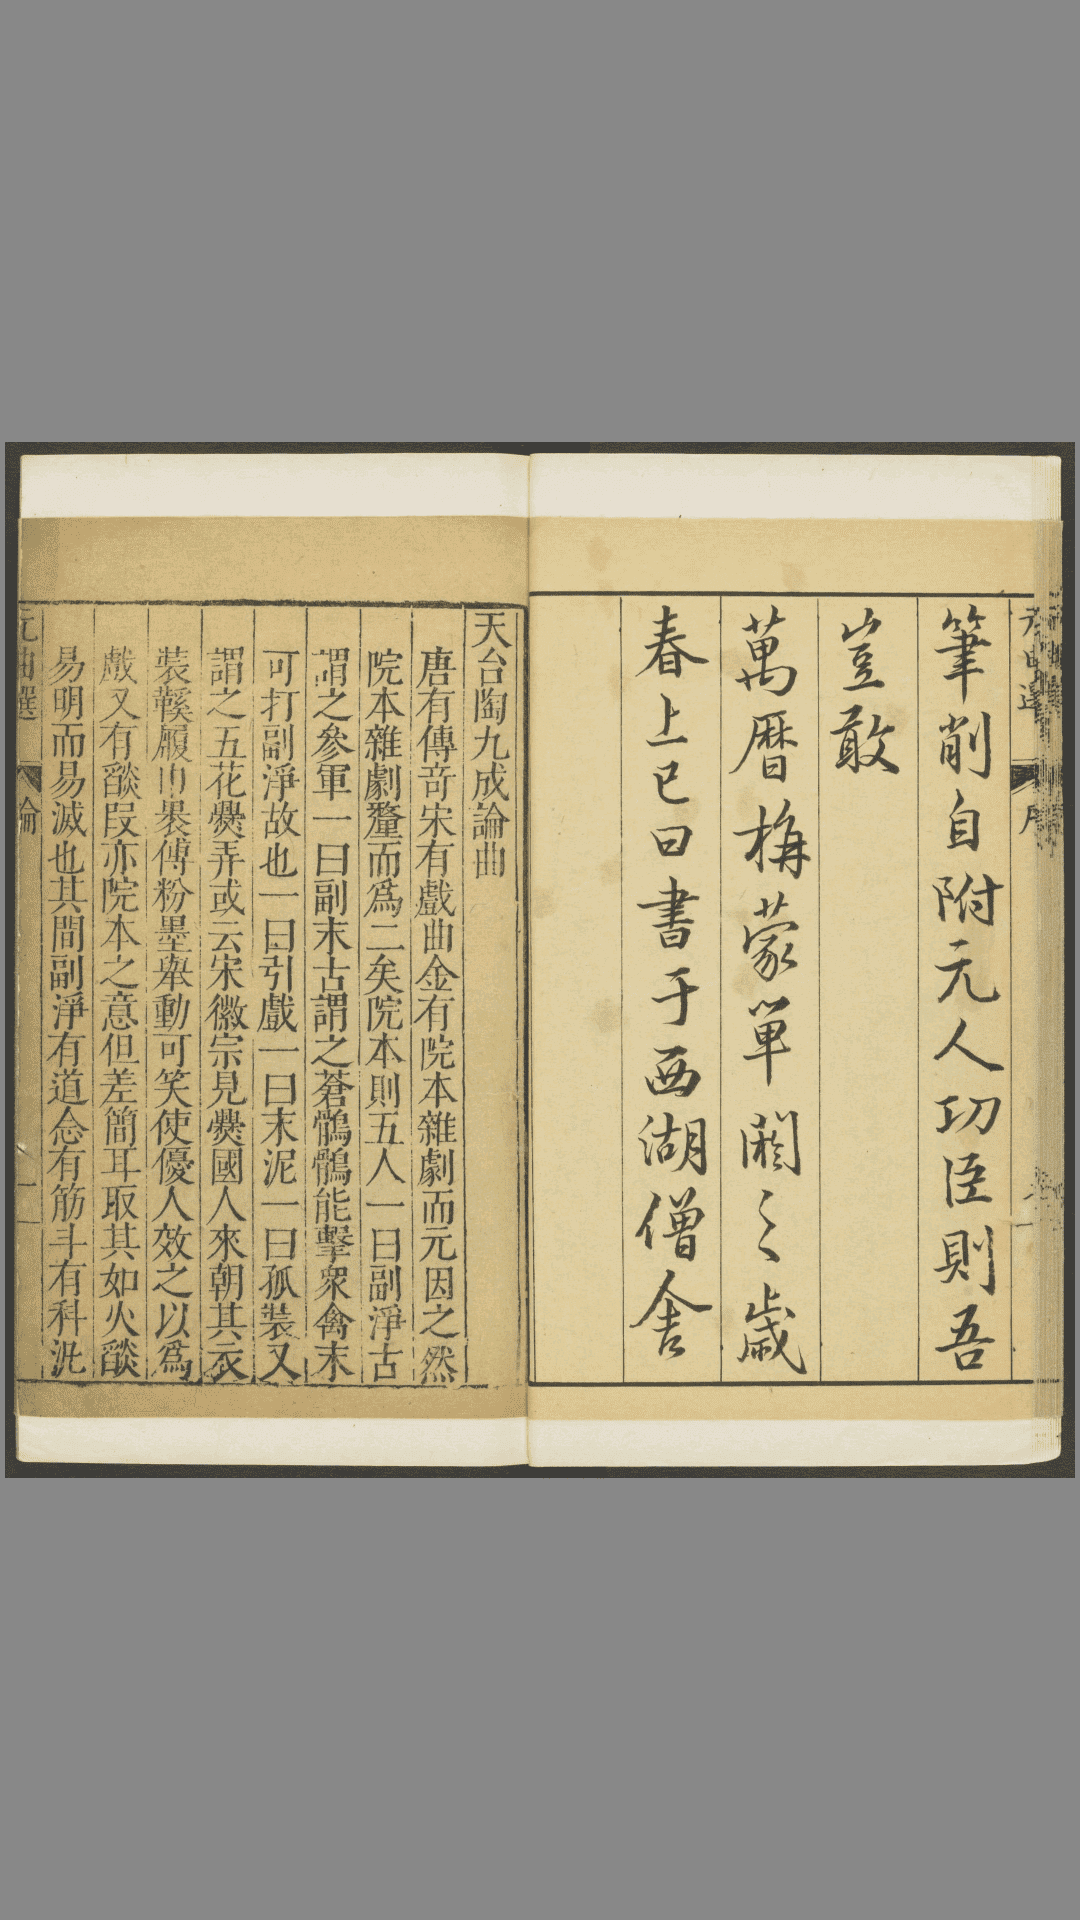 筆削自附元人功臣則吾
豈敢
萬曆旃蒙單閼之歲
春上巳日書于西湖僧舍
天台陶九成論曲
唐有傳奇宋有戲曲金有院本雜劇而元因之然
院本雜劇釐而爲二矣院本則五人一曰副淨古
謂之參軍一曰副末古謂之蒼鶻鶻能擊衆禽末
可打副淨故也一曰引戲一曰末泥一曰孤裝又
謂之五花爨弄或云宋徽宗見爨國人來朝其衣
裝鞵履巾裹傅粉墨舉動可笑使優人效之以爲
戲又有燄叚亦院本之意但差簡耳取其如火燄
易明而易滅也其間副淨有道念有筋斗有科汎
元曲選 論